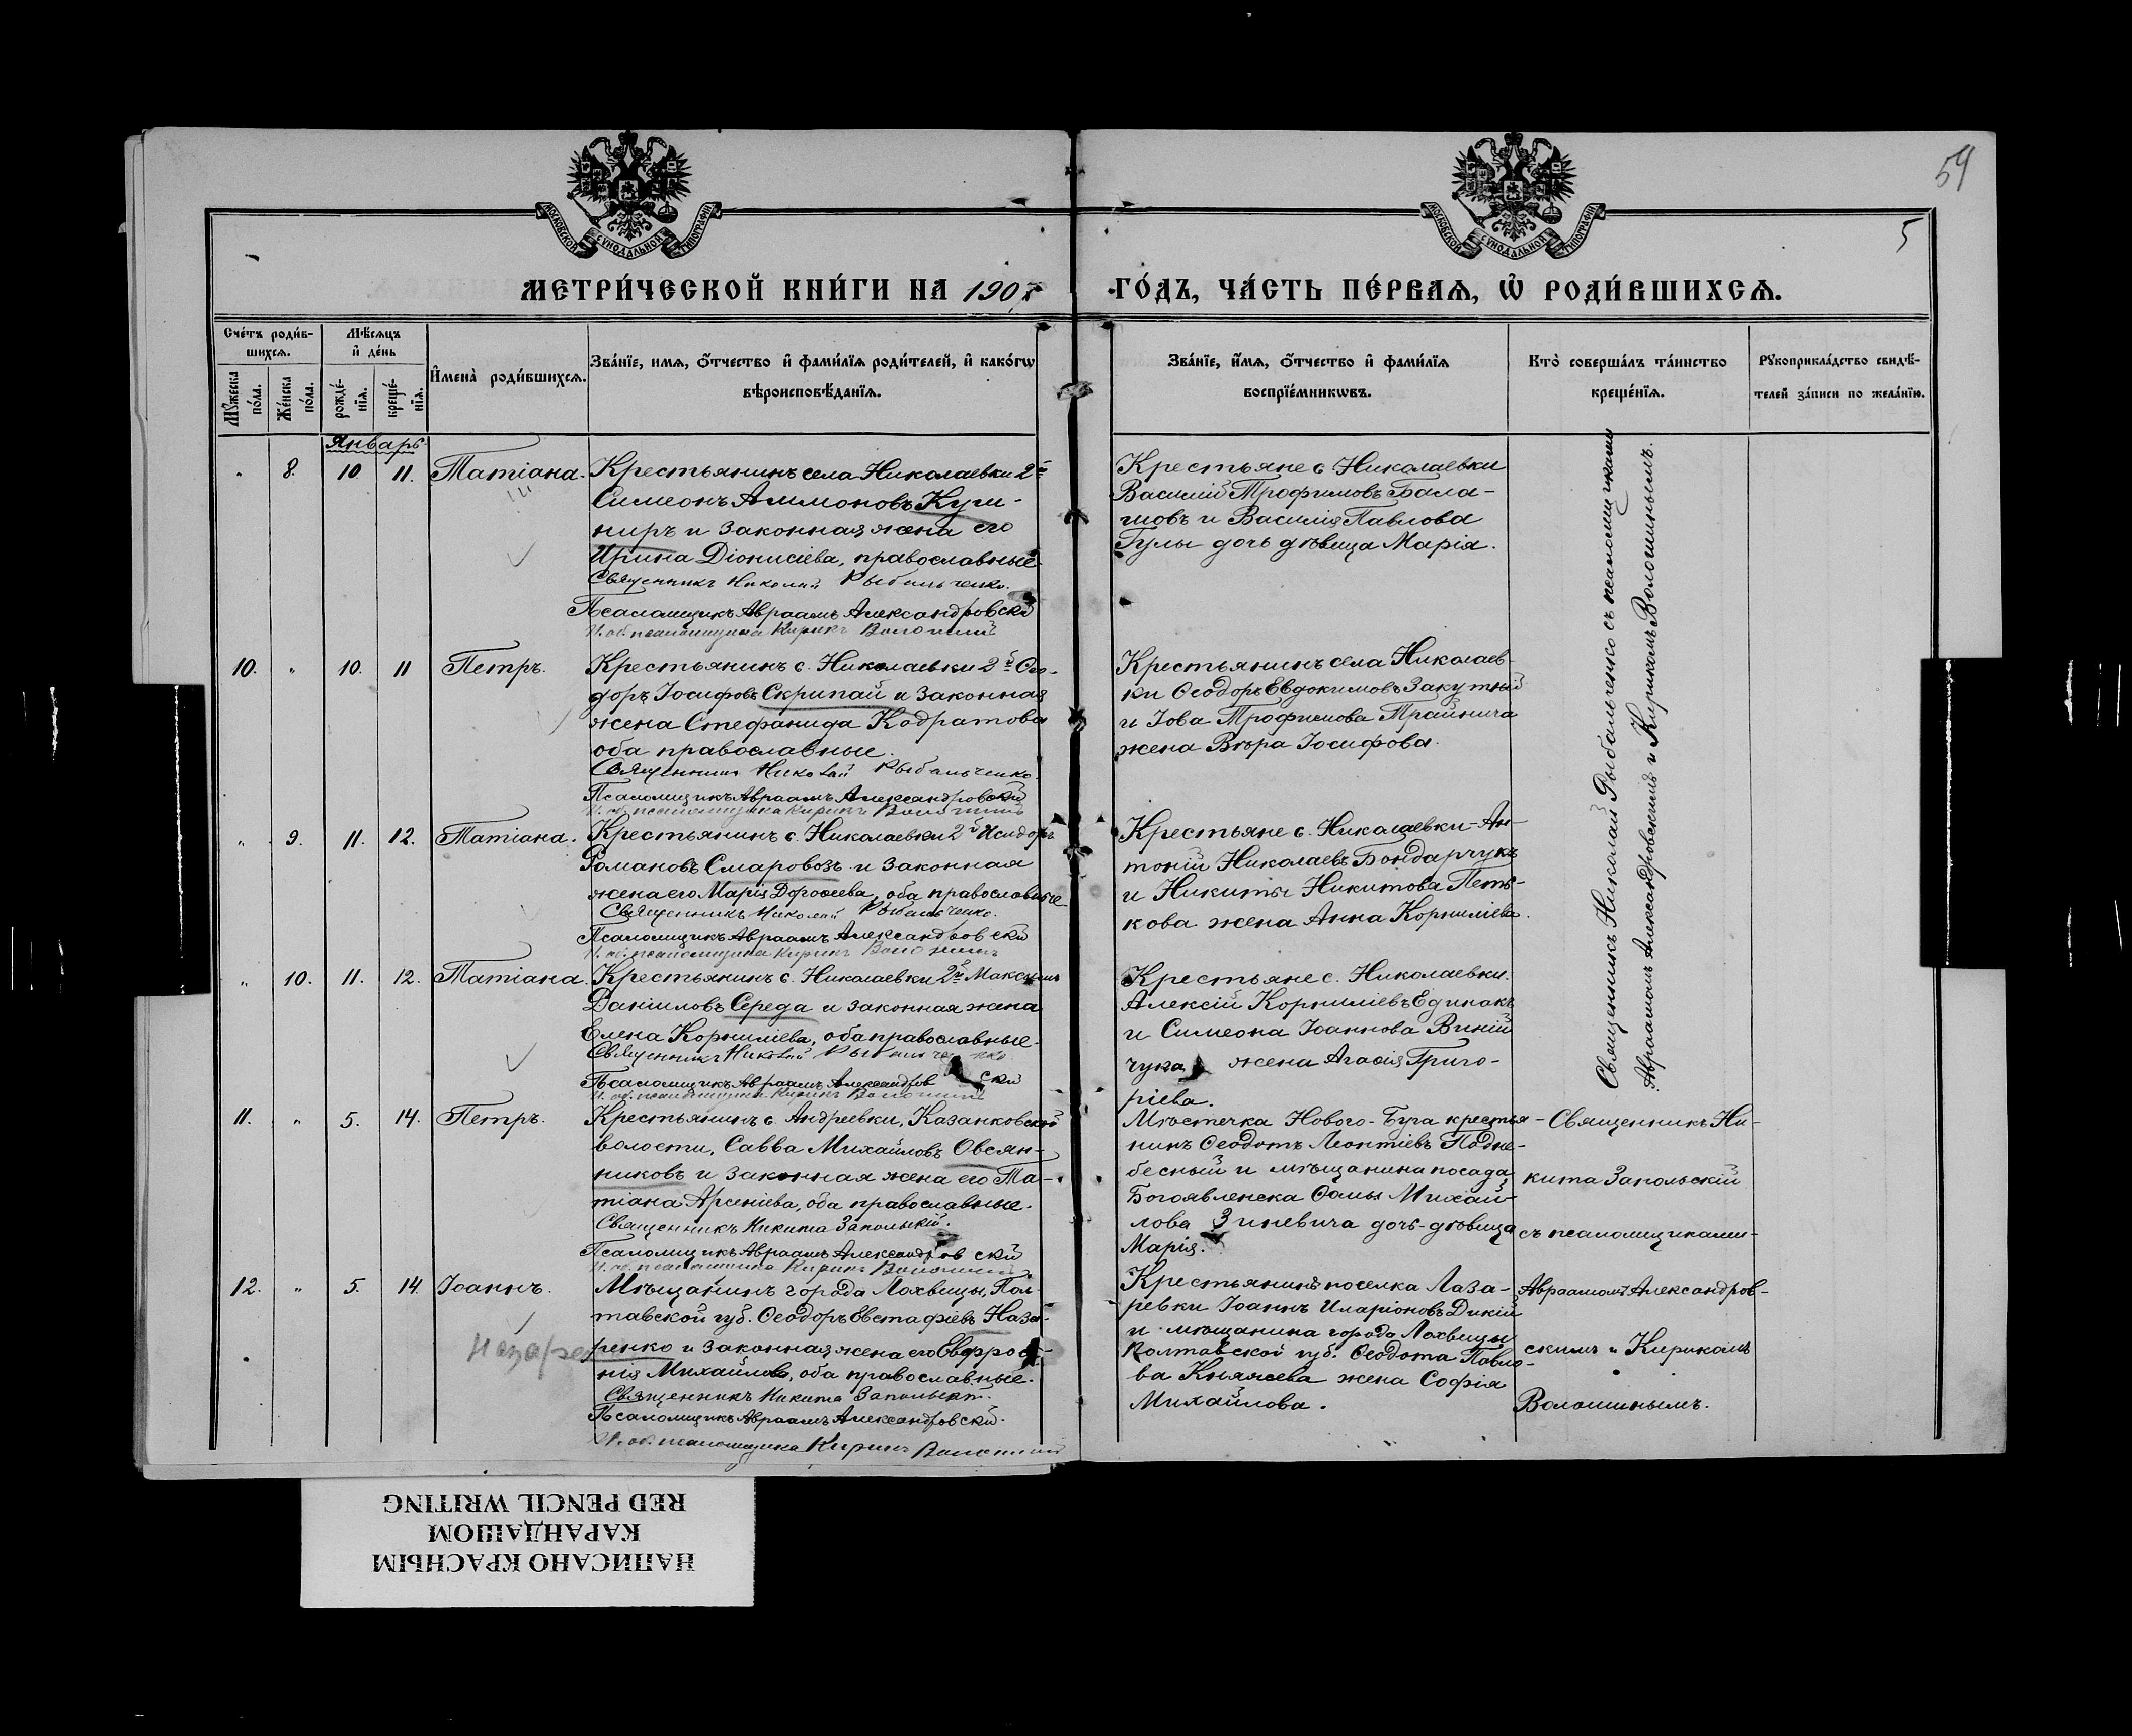 59
5
МОСКОВСКОЙ СѴНОДАЛЬНОЙ ТИПОГРАФІИ
МОСКОВСКОЙ СѴНОДАЛЬНОЙ ТИПОГРАФІИ
МЕТРИ́ЧЕСКОЙ КНИ́ГИ НА 1907 ГО́ДЪ, ЧА́СТЬ ПЕ́РВАѦ, Ѡ҆ РОДИ́ВШИХСѦ.
Сче́тъ роди́в-
шихсѧ.
Мѣ́сѧцъ
и҆ де́нь
Мꙋ́жеска
по́ла.
Же́нска
по́ла.
рожде́-
нїѧ.
креще́-
нїѧ.
И҆мена̀ роди́вшихсѧ.
Зва́нїе, имѧ, ѻ҆́тчество и҆ фами́лїѧ роди́телей, и҆ како́гѡ
вѣроисповѣ́данїѧ.
Зва́нїе, и҆́мѧ, ѻ҆́тчество и҆ фами́лїѧ
воспрїе́мникѡвъ.
Кто̀ соверша́лъ та́инство
креще́нїѧ.
Рꙋкоприкла́дство свидѣ́-
телей за́писи по жела́нїю.
Январь.
" 8. 10 11. Татіана.
Крестьянинъ села Николаевки 2й
Симеонъ Аммоновъ Куш-
ниръ и законная жена его
Ирина Діонисіева, православные.
Священникъ Николай Рыбальченко.
Псаломщикъ Авраамъ Александровскій
И. об. псаломщика Кирикъ Волошинъ
Крестьяне с Николаевки
Василій Трофимовъ Бала-
шовъ и Василія Павлова
Гулы дочь дѣвица Марія.
10. " 10. 11 Петръ.
Крестьянинъ с. Николаевки 2й Ѳео-
доръ Іосифовъ Скрипай и законная
жена Стефанида Кодратова
оба православные.
Священникъ Николай Рыбальченко.
Псаломщикъ Авраамъ Александровскій
И. об. псаломщика Кирикъ Волошинъ
Крестьянинъ села Николаев-
ки Ѳеодоръ Евдокимовъ Закутный
и Іова Трофимова Трайнича
жена Вѣра Іосифова.
" 9. 11. 12. Татіана.
Крестьянинъ с. Николаевки 2й Исидоръ
Романовъ Смаровозъ и законная
жена его Марія Дороѳеева, оба православные
Священникъ Николай Рыбальченко.
Псаломщикъ Авраамъ Александровскій
И. об. псаломщика Кирикъ Волошинъ
Крестьяне с. Николаевки Ан-
тоній Николаевъ Бондарчукъ
и Никиты Никитова Петь-
кова жена Анна Корниліева.
" 10. 11. 12. Татіана.
Крестьянинъ с. Николаевки 2й Максимъ
Даніиловъ Середа и законная жена
Елена Корниліева, оба православные.
Священникъ Николай Рыбальченко.
Псаломщикъ Авраамъ Александровскій
И. об. псаломщика Кирикъ Волошинъ
Крестьяне с. Николаевки.
Алексій Корниліевъ Единакъ
и Симеона Іоаннова Виній
чука жена Агаѳія Григо-
ріева.
Священникъ Николай Рыбальченко съ псаломщиками
Авраамомъ Александровскимъ и Кирикомъ Волошинымъ.
11. " 5. 14. Петръ.
Крестьянинъ с. Андреевки, Казанковской
волости, Савва Михайловъ Овсян-
никовъ и законная жена его Та-
тіана Арсеніева, оба православные.
Священникъ Никита Запольскій.
Псаломщикъ Авраамъ Александровскій
И. об. псаломщика Кирикъ Волошинъ
Мѣстечка Нового-Буга кресть-
нинъ Ѳеодотъ Леонтіевъ Подне-
бесный и мѣщанина посада
Богоявленска Ѳомы Михай-
лова Зиневича дочь-дѣвица
Марія.
12. " 5. 14. Іоаннъ.
Назаре
Мѣщанинъ города Лохвицы, Пол-
тавской губ. Ѳеодоръ Евстафіевъ Наза-
ренко и законная жена его Евфроси-
нія Михайлова, оба православные.
Священникъ Никита Запольскій.
Псаломщикъ Авраамъ Александровскій.
И. об. псаломщика Кирикъ Волошинъ
Крестьянинъ поселка Лаза-
ревки Іоаннъ Иларіоновъ Дикій
и мѣщанина города Лохвицы
Полтавской губ. Ѳеодота Павло-
ва Княжева жена Софія
Михайлова.
Священникъ Ни-
кита Запольскій
съ псаломщиками-
Авраамомъ Александров-
скимъ и Кирикомъ
Волошинымъ.
НАПИСАНО КРАСНЫМ
КАРАНДАШОМ
RED PENCIL WRITING